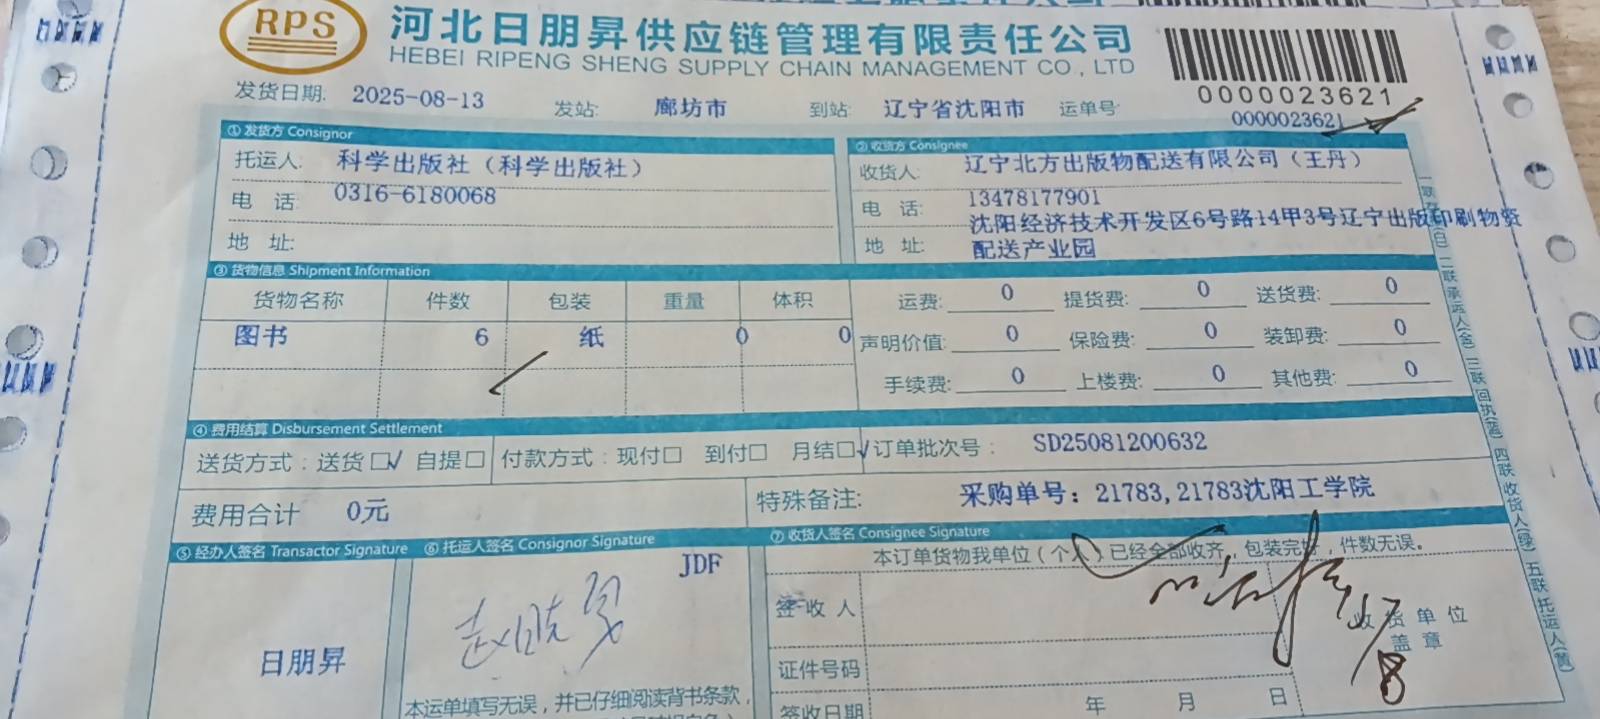 RPS
河北日朋昇供应链管理有限责任公司
HEBEI RIPENG SHENG SUPPLY CHAIN MANAGEMENT CO., LTD
0000023621
发货日期: 2025-08-13 发站: 廊坊市 到站: 辽宁省沈阳市 运单号: 0000023621
① 发货方 Consignor
托运人: 科学出版社（科学出版社）
电 话: 0316-6180068
地 址:
② 收货方 Consignee
收货人: 辽宁北方出版物配送有限公司（王丹）
电 话: 13478177901
地 址: 沈阳经济技术开发区6号路14甲3号辽宁出版印刷物资
配送产业园
③ 货物信息 Shipment Information
货物名称 件数 包装 重量 体积
图书 6 纸 0 0
运费: 0 提货费: 0 送货费: 0
声明价值: 0 保险费: 0 装卸费: 0
手续费: 0 上楼费: 0 其他费: 0
④ 费用结算 Disbursement Settlement
送货方式: 送货□√ 自提□ 付款方式: 现付□ 到付□ 月结□√ 订单批次号: SD25081200632
费用合计 0元 特殊备注: 采购单号: 21783,21783沈阳工学院
⑤ 经办人签名 Transactor Signature
日朋昇
⑥ 托运人签名 Consignor Signature
JDF
本运单填写无误，并已仔细阅读背书条款，
⑦ 收货人签名 Consignee Signature
本订单货物我单位（个人）已经全部收齐，包装完好，件数无误。
签 收 人
收 货 单 位
盖 章
证件号码
签收日期 年 月 日
二联承运人(金) 三联回执(蓝) 四联收货人(绿) 五联托运人(黄)